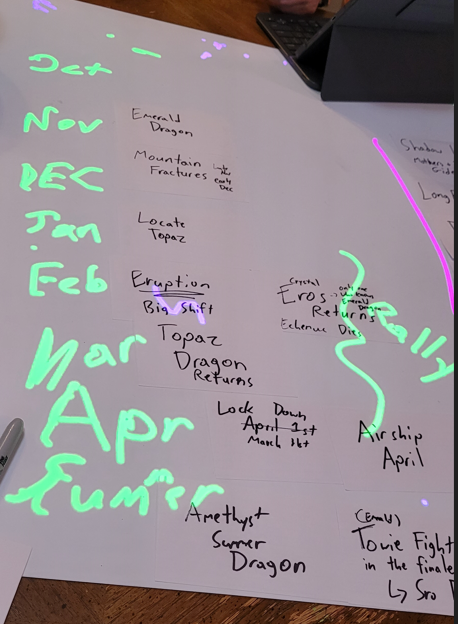 Oct
Nov
Emerald
Dragon
DEC
Mountain
Fractures
Late
Nov
Early
Dec
Jan
Locate
Topaz
Feb
Eruption
Big Shift
Crystal
Eros
Returns
Echenue Dies
only one
Emerald
Dragon
Really
Mar
Topaz
Dragon
Returns
Apr
Lock Down
April 1st
March 31st
Airship
April
Summer
Amethyst
Summer
Dragon
Tovie Fight
in the finale
↳ Sro
Shadow
Long